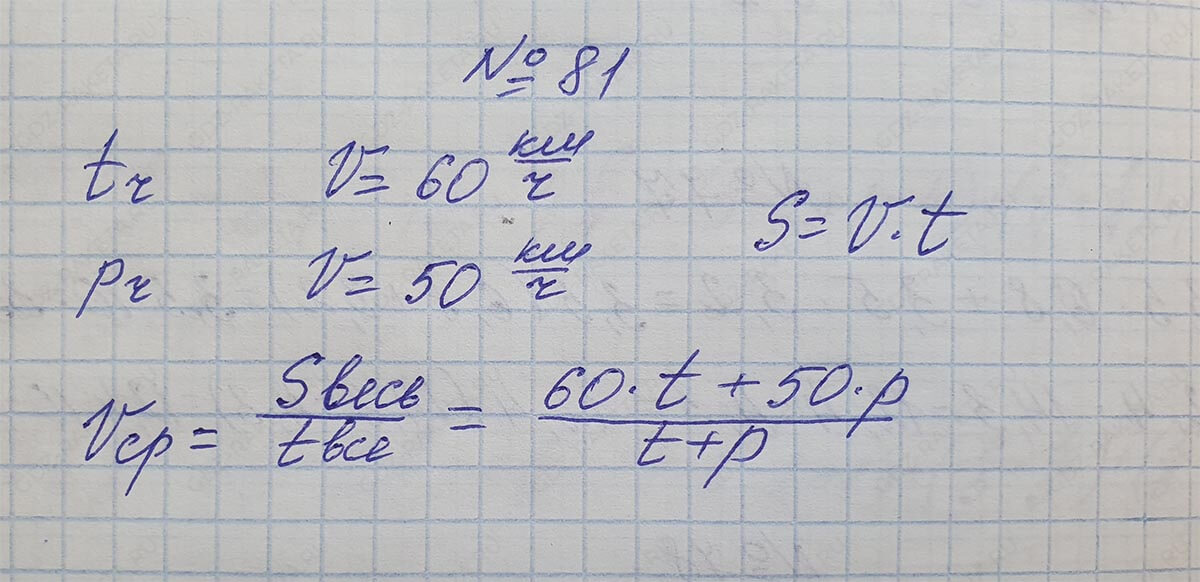 № 81
t ч V = 60 км/ч
S = V · t
p ч V = 50 км/ч
Vср = Sвесь/tвсе = (60 · t + 50 · p)/(t + p)